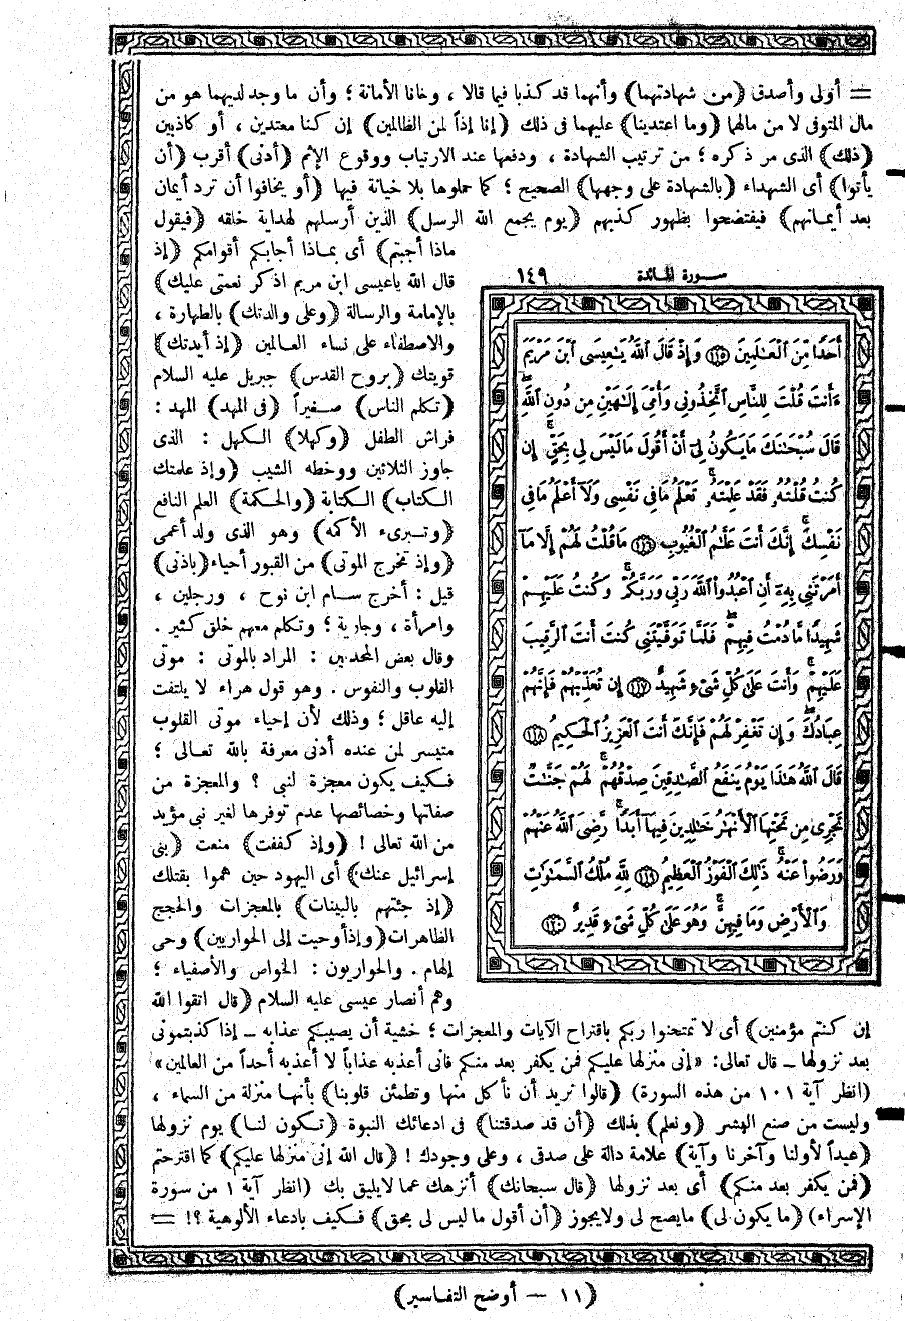 = أولى وأصدق (من شهادتهما) وأنهما قد كذبا فيما قالا ، وخانا الأمانة ؛ وأن ما وجد لديهما هو من
مال المتوفى لا من مالهما (وما اعتدينا) عليهما فى ذلك (إنا إذاً لمن الظالمين) إن كنا معتدين ، أو كاذبين
(ذلك) الذى مر ذكره ؛ من ترتيب الشهادة ، ودفعها عند الارتياب ووقوع الإثم (أدنى) أقرب (أن
يأتوا) أى الشهداء (بالشهادة على وجهها) الصحيح ؛ كما حملوها بلا خيانة فيها (أو يخافوا أن ترد أيمان
بعد أيمانهم) فيفتضحوا بظهور كذبهم (يوم يجمع الله الرسل) الذين أرسلهم لهداية خلقه (فيقول
ماذا أجبتم) أى بماذا أجابكم أقوامكم (إذ
قال الله ياعيسى ابن مريم اذكر نعمتى عليك)
بالإمامة والرسالة (وعلى والدتك) بالطهارة ،
والاصطفاء على نساء العالمين (إذ أيدتك)
قويتك (بروح القدس) جبريل عليه السلام
(تكلم الناس) صغيراً (فى المهد) المهد :
فراش الطفل (وكهلا) الكهل : الذى
جاوز الثلاثين ووخطه الشيب (وإذ علمتك
الكتاب) الكتابة (والحكمة) العلم النافع
(وتبرىء الأكمه) وهو الذى ولد أعمى
(وإذ تخرج الموتى) من القبور أحياء (بإذنى)
قيل : أخرج سام ابن نوح ، ورجلين ،
وامرأة ، وجارية ؛ وتكلم معهم خلق كثير .
وقال بعض المحدثين : المراد بالموتى : موتى
القلوب والنفوس . وهو قول هراء لا يلتفت
إليه عاقل ؛ وذلك لأن إحياء موتى القلوب
متيسر لمن عنده أدنى معرفة بالله تعالى ؛
فكيف يكون معجزة لنبى ؟ والمعجزة من
صفاتها وخصائصها عدم توفرها لغير نبى مؤيد
من الله تعالى ! (وإذ كففت) منعت (بنى
إسرائيل عنك) أى اليهود حين هموا بقتلك
(إذ جئتهم بالبينات) بالمعجزات والحجج
الظاهرات (وإذ أوحيت إلى الحواريين) وحى
إلهام . والحواريون : الخواص والأصفياء ؛
وهم أنصار عيسى عليه السلام (قال اتقوا الله
سورة المائدة ١٤٩
أَحَدًا مِّنَ ٱلْعَـٰلَمِينَ ﴿١١٥﴾ وَإِذْ قَالَ ٱللَّهُ يَـٰعِيسَى ٱبْنَ مَرْيَمَ
ءَأَنتَ قُلْتَ لِلنَّاسِ ٱتَّخِذُونِى وَأُمِّىَ إِلَـٰهَيْنِ مِن دُونِ ٱللَّهِ ۖ
قَالَ سُبْحَـٰنَكَ مَا يَكُونُ لِىٓ أَنْ أَقُولَ مَا لَيْسَ لِى بِحَقٍّ ۚ إِن
كُنتُ قُلْتُهُۥ فَقَدْ عَلِمْتَهُۥ ۚ تَعْلَمُ مَا فِى نَفْسِى وَلَآ أَعْلَمُ مَا فِى
نَفْسِكَ ۚ إِنَّكَ أَنتَ عَلَّـٰمُ ٱلْغُيُوبِ ﴿١١٦﴾ مَا قُلْتُ لَهُمْ إِلَّا مَآ
أَمَرْتَنِى بِهِۦٓ أَنِ ٱعْبُدُوا۟ ٱللَّهَ رَبِّى وَرَبَّكُمْ ۚ وَكُنتُ عَلَيْهِمْ
شَهِيدًا مَّا دُمْتُ فِيهِمْ ۖ فَلَمَّا تَوَفَّيْتَنِى كُنتَ أَنتَ ٱلرَّقِيبَ
عَلَيْهِمْ ۚ وَأَنتَ عَلَىٰ كُلِّ شَىْءٍ شَهِيدٌ ﴿١١٧﴾ إِن تُعَذِّبْهُمْ فَإِنَّهُمْ
عِبَادُكَ ۖ وَإِن تَغْفِرْ لَهُمْ فَإِنَّكَ أَنتَ ٱلْعَزِيزُ ٱلْحَكِيمُ ﴿١١٨﴾
قَالَ ٱللَّهُ هَـٰذَا يَوْمُ يَنفَعُ ٱلصَّـٰدِقِينَ صِدْقُهُمْ ۚ لَهُمْ جَنَّـٰتٌ
تَجْرِى مِن تَحْتِهَا ٱلْأَنْهَـٰرُ خَـٰلِدِينَ فِيهَآ أَبَدًا ۚ رَّضِىَ ٱللَّهُ عَنْهُمْ
وَرَضُوا۟ عَنْهُ ۚ ذَٰلِكَ ٱلْفَوْزُ ٱلْعَظِيمُ ﴿١١٩﴾ لِلَّهِ مُلْكُ ٱلسَّمَـٰوَٰتِ
وَٱلْأَرْضِ وَمَا فِيهِنَّ ۚ وَهُوَ عَلَىٰ كُلِّ شَىْءٍ قَدِيرٌ ﴿١٢٠﴾
إن كنتم مؤمنين) أى لا تمتحنوا ربكم باقتراح الآيات والمعجزات ؛ خشية أن يصيبكم عذابه – إذا كذبتمونى
بعد نزولها – قال تعالى: «إنى منزلها عليكم فمن يكفر بعد منكم فإنى أعذبه عذاباً لا أعذبه أحداً من العالمين»
(انظر آية ١٠١ من هذه السورة) (قالوا نريد أن نأكل منها وتطمئن قلوبنا) بأنها منزلة من السماء ،
وليست من صنع البشر (ونعلم) بذلك (أن قد صدقتنا) فى ادعائك النبوة (تكون لنا) يوم نزولها
(عيداً لأولنا وآخرنا وآية) علامة دالة على صدقى ، وعلى وجودك ! (قال الله إنى منزلها عليكم) كما اقترحتم
(فمن يكفر بعد منكم) أى بعد نزولها (قال سبحانك) أنزهك عما لايليق بك (انظر آية ١ من سورة
الإسراء) (ما يكون لى) مايصح لى ولايجوز (أن أقول ما ليس لى بحق) فكيف بادعاء الألوهية ؟! =
(١١ — أوضح التفاسير)